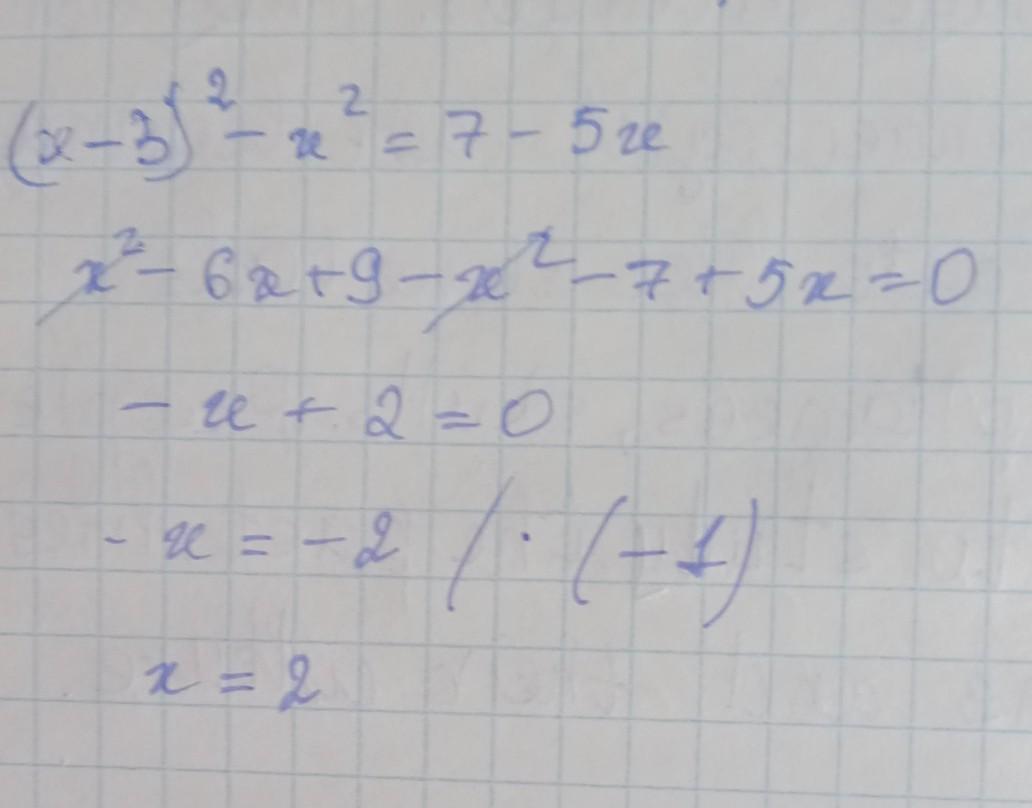 (x-3)² - x² = 7 - 5x
x² - 6x + 9 - x² - 7 + 5x = 0
- x + 2 = 0
- x = - 2 / · (-1)
x = 2